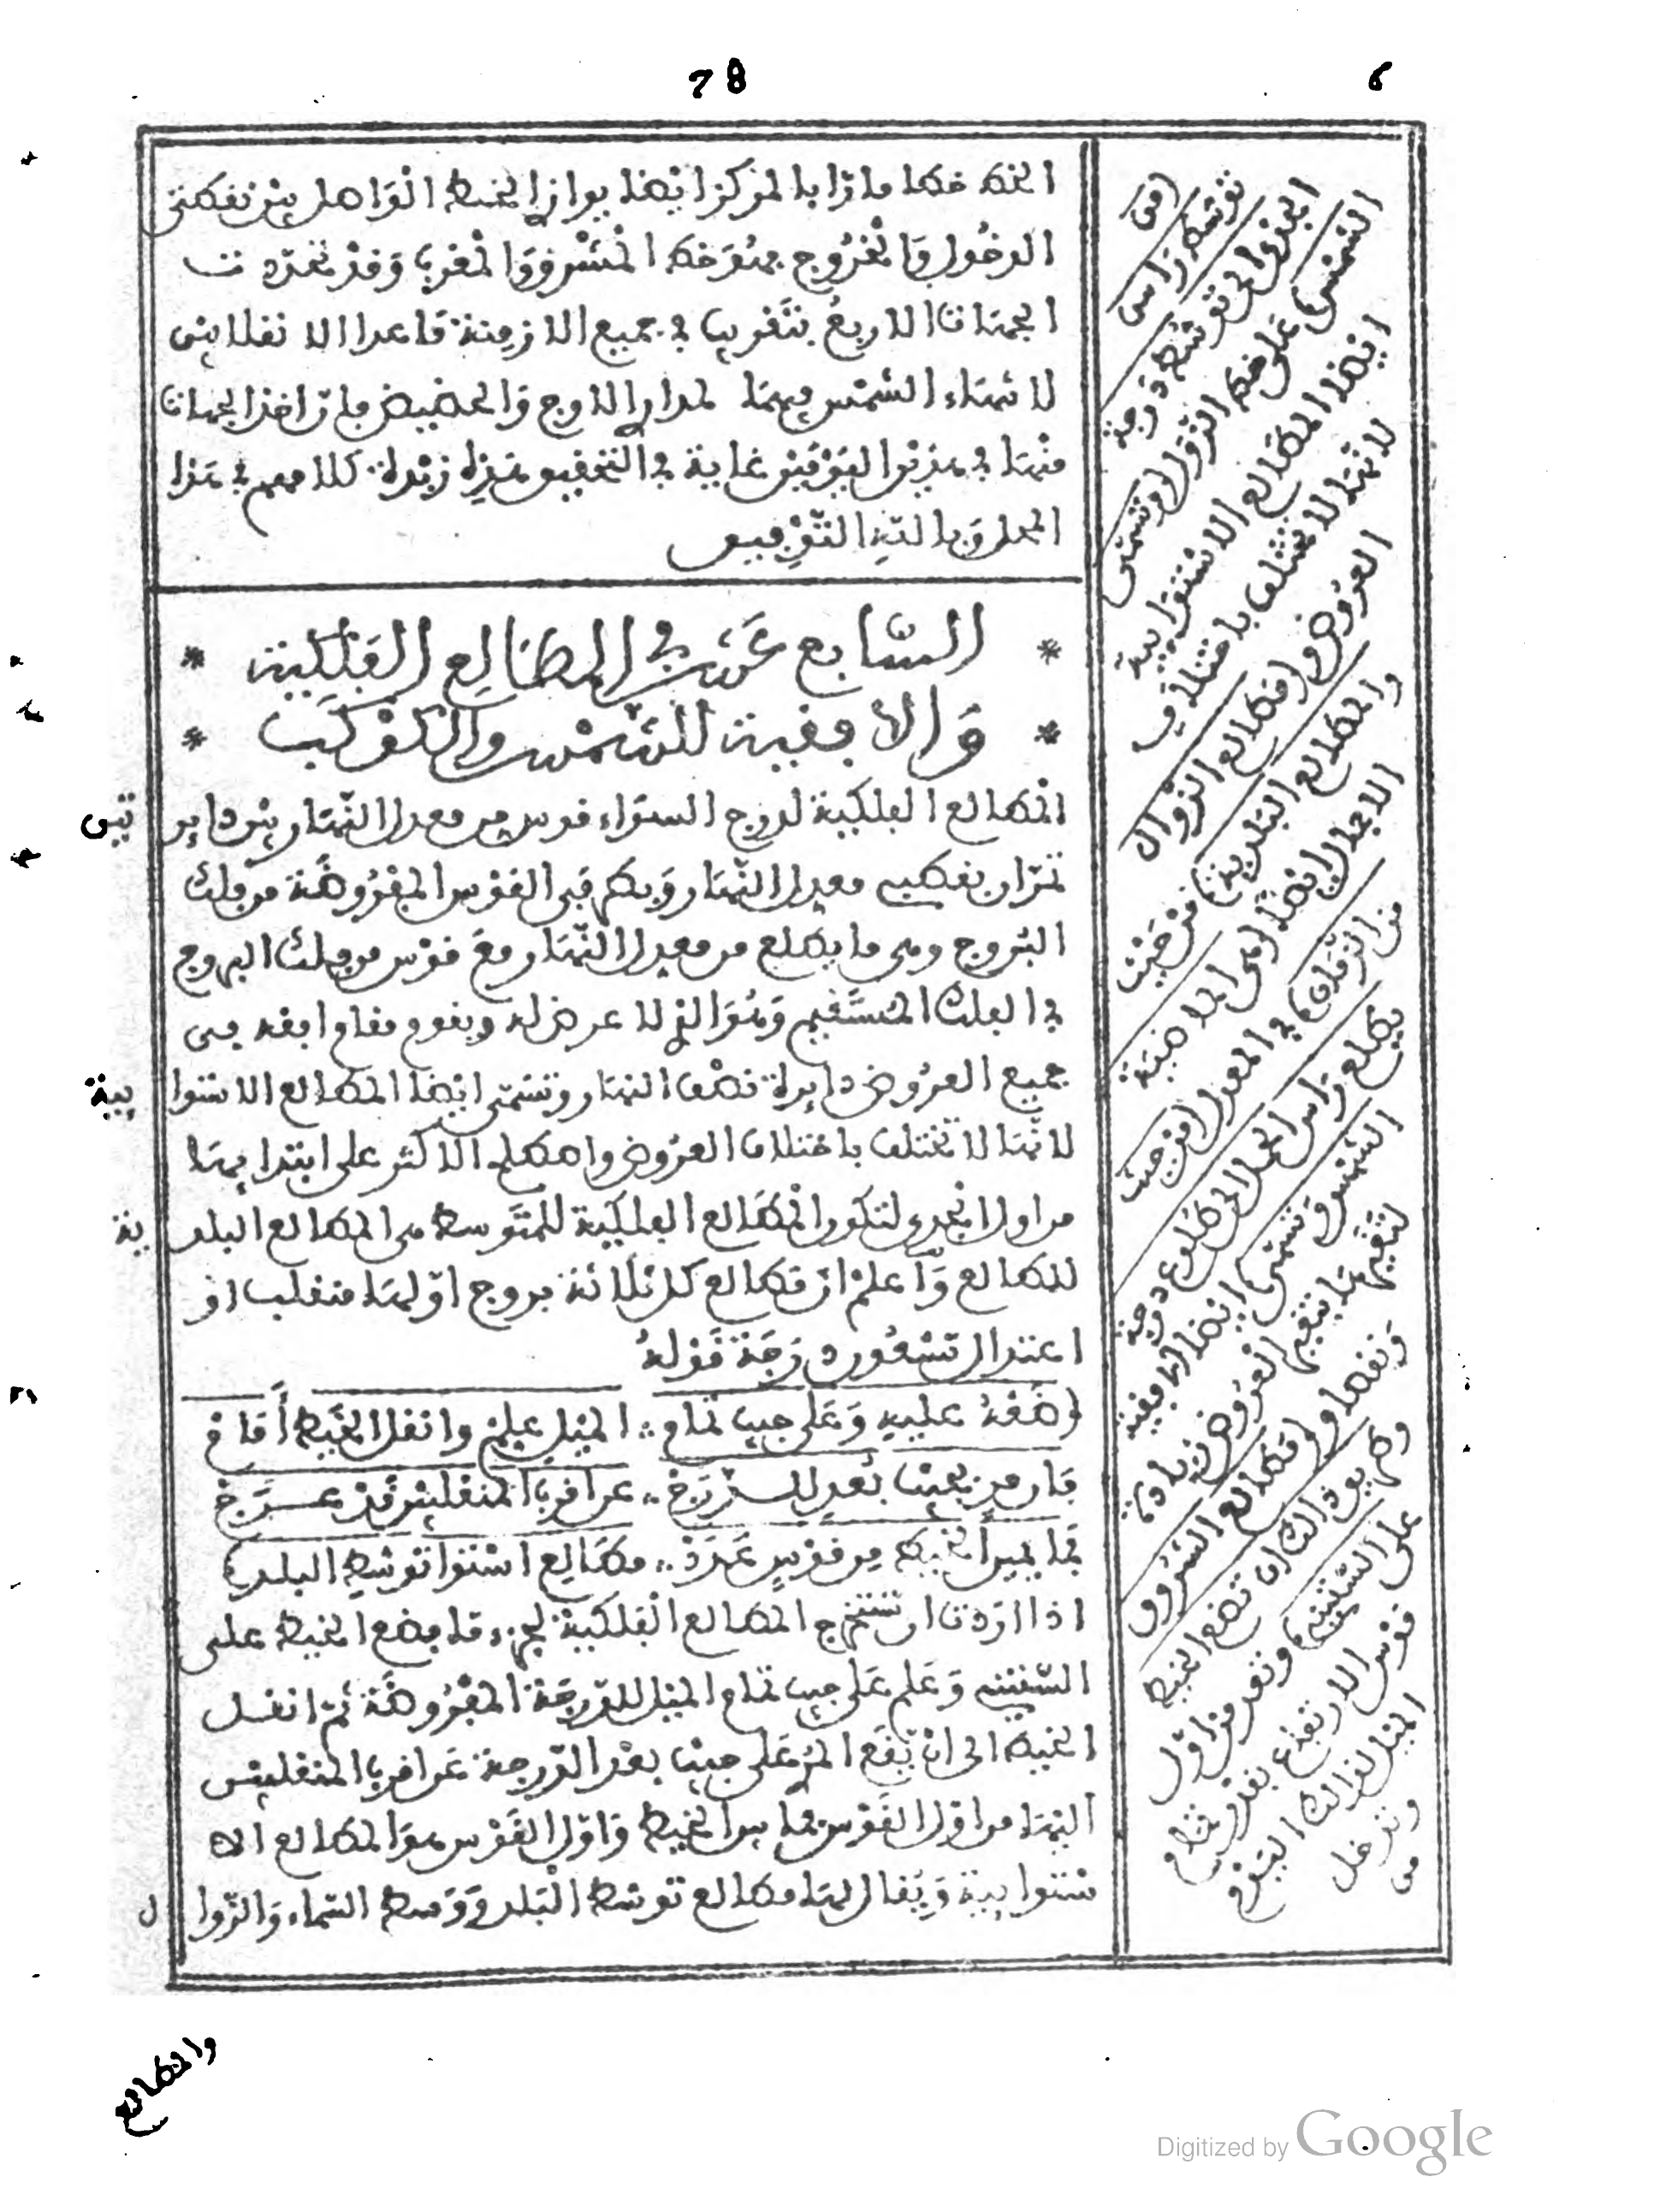 78
6
الخط خطا مارّا بالمركز ايضا يوازي الخيط الواصل بين نقطتي
الدخول والخروج فهو خط المشرق والمغرب وقد تحددت
الجهات الاربع بتقريب في جميع الازمنة ما عدا الانقلابين
لانتهاء الشمس فيهما لمدار الاوج والحضيض فان اخذ الجهات
منها في هذين اليومين غاية في التحقيق هذه زبدة كلامهم في هذا
المحل وبالله التوفيق
* السابع عشر في المطالع الفلكية *
* والافقية للشمس والكوكب *
المطالع الفلكية لدرج السواء قوس من معدل النهار بين دايرتين
تمران بقطبي معدل النهار وبطرفي القوس المفروضة من فلك
البروج وهي ما يطلع من معدل النهار مع قوس من فلك البروج
في الفلك المستقيم وهو الذي لا عرض له ويقوم مقام افقه في
جميع العروض دايرة نصف النهار وتسمى ايضا المطالع الاستوايية
لانها لا تختلف باختلاف العروض واصطلح الاكثر على ابتدايها
من اول الجدي لتكون المطالع الفلكية للمتوسط هي المطالع البلدية
للطالع واعلم ان مطالع كل ثلاثة بروج اولها منقلب او
اعتدال تسعون درجة قوله
وضعه عليه وعلى جيب تمام ∴ الميل علم وانقل الخيط أمام
فان مري بجيب بعد للدرج ∴ عن اقرب المنقلبين قد عرج
فما يبين الخيط من قوس عدد ∴ مطالع استوا توسط البلد
اذا اردت ان تستخرج المطالع الفلكية لجزء ما فضع الخيط على
الستيني وعلم على جيب تمام الميل للدرجة المفروضة ثم انقل
الخيط الى ان يقع المري على جيب بعد الدرجة عن اقرب المنقلبين
اليها من اول القوس فما بين الخيط واول القوس هو المطالع الا
ستوايية ويقال لها مطالع توسط البلد ووسط السماء والزوال
توسط راس
الجدي الى توسط درجة
الشمس على خط الزوال وتسمى
ايضا المطالع الاستوايية
لانها لا تختلف باختلاف
العروض ومطالع الزوال
والمطالع البلدية من حيث
الاجمال ايضا وهي الماضية
من الزمان في المعدل من حيث
يطلع راس الحمل الى طلوع درجة
الشمس وتسمى ايضا الافقية
لتغيرها بتغير العروض زيادة
ونقصا ومطالع الشروق
وطريق ذلك ان تضع الخيط
على الستيني وتعد من اول
قوس الارتفاع بقدر تمام
الميل لذلك اليوم
وتدخل
من
والمطالع
Digitized by Google